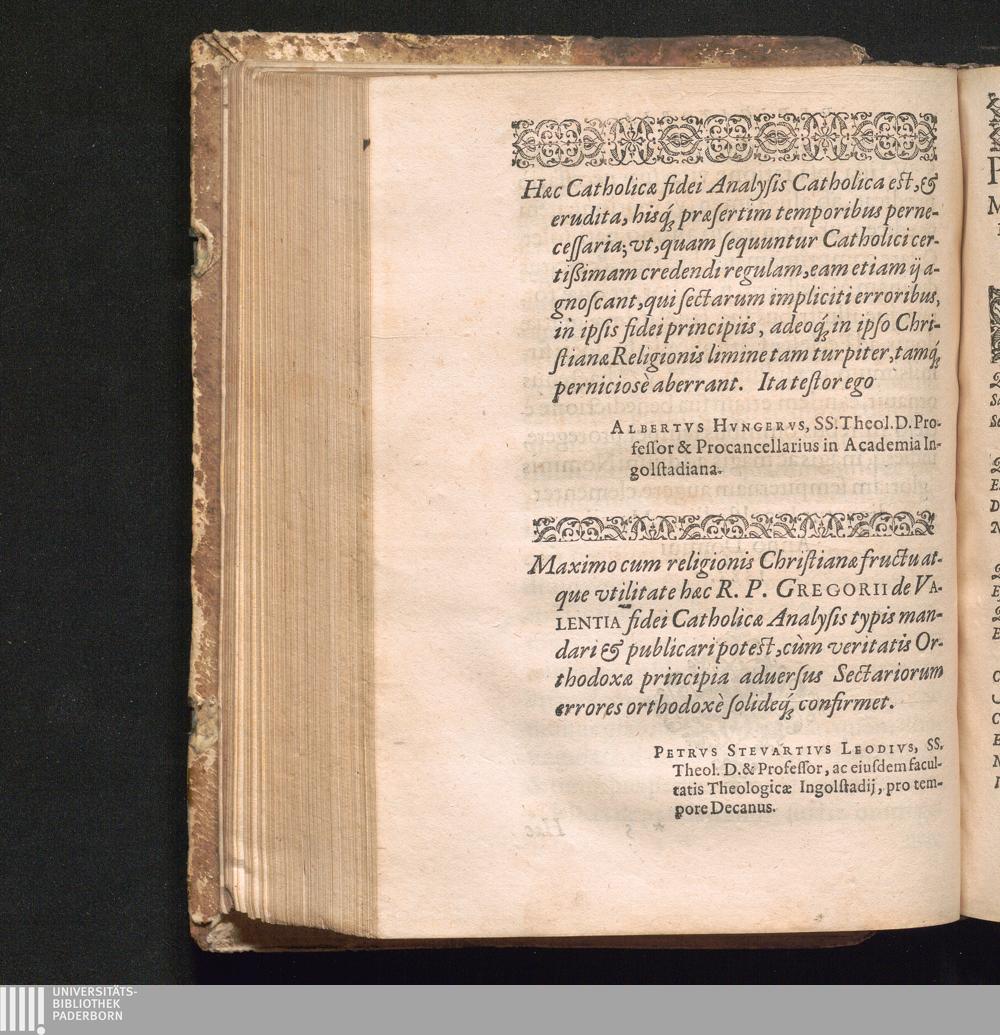 Hæc Catholicæ fidei Analyſis Catholica eſt, &
erudita, hisq́; præſertim temporibus perne-
ceſſaria; vt, quam ſequuntur Catholici cer-
tißimam credendi regulam, eam etiam ij a-
gnoſcant, qui ſectarum impliciti erroribus,
in ipſis fidei principiis, adeoq́; in ipſo Chri-
ſtianæ Religionis limine tam turpiter, tamq́;
perniciosè aberrant. Ita teſtor ego
ALBERTVS HVNGERVS, SS. Theol. D. Pro-
feſſor & Procancellarius in Academia In-
golſtadiana.
Maximo cum religionis Chriſtianæ fructu at-
que vtilitate hæc R. P. GREGORII de VA-
LENTIA fidei Catholicæ Analyſis typis man-
dari & publicari poteſt, cùm veritatis Or-
thodoxæ principia aduerſus Sectariorum
errores orthodoxè ſolideq́; confirmet.
PETRVS STEVARTIVS LEODIVS, SS.
Theol. D. & Profeſſor, ac eiuſdem facul-
tatis Theologicæ Ingolſtadij, pro tem-
pore Decanus.
UNIVERSITÄTS-
BIBLIOTHEK
PADERBORN